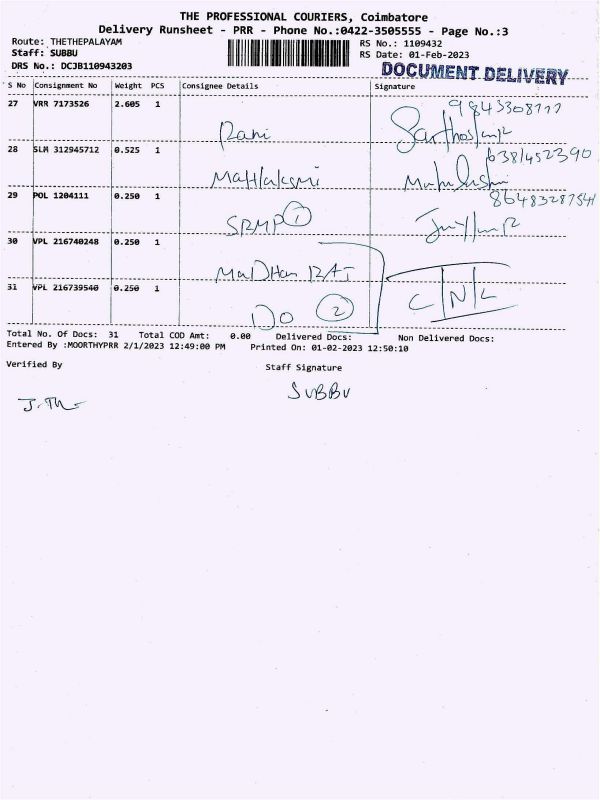 THE PROFESSIONAL COURIERS, Coimbatore
Delivery Runsheet - PRR - Phone No.:0422-3505555 - Page No.:3
Route: THETHEPALAYAM
RS No.: 1109432
Staff: SUBBU
RS Date: 01-Feb-2023
DRS No.: DCJB110943203
DOCUMENT DELIVERY
S No Consignment No Weight PCS Consignee Details Signature
27 VRR 7173526 2.605 1
Rani
28 SLM 312945712 0.525 1
6381452390
29 POL 1204111 0.250 1
SRMP 1
8648328754
30 VPL 216740248 0.250 1
31 VPL 216739540 0.250 1
DO 2 C/N/L
Total No. Of Docs: 31 Total COD Amt: 0.00 Delivered Docs: Non Delivered Docs:
Entered By :MOORTHYPRR 2/1/2023 12:49:00 PM Printed On: 01-02-2023 12:50:10
Verified By
Staff Signature
SUBBU